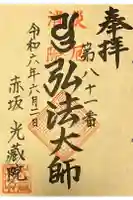 奉拝
第八十一番
弘法大師
令和六年六月二日
赤坂 光蔵院